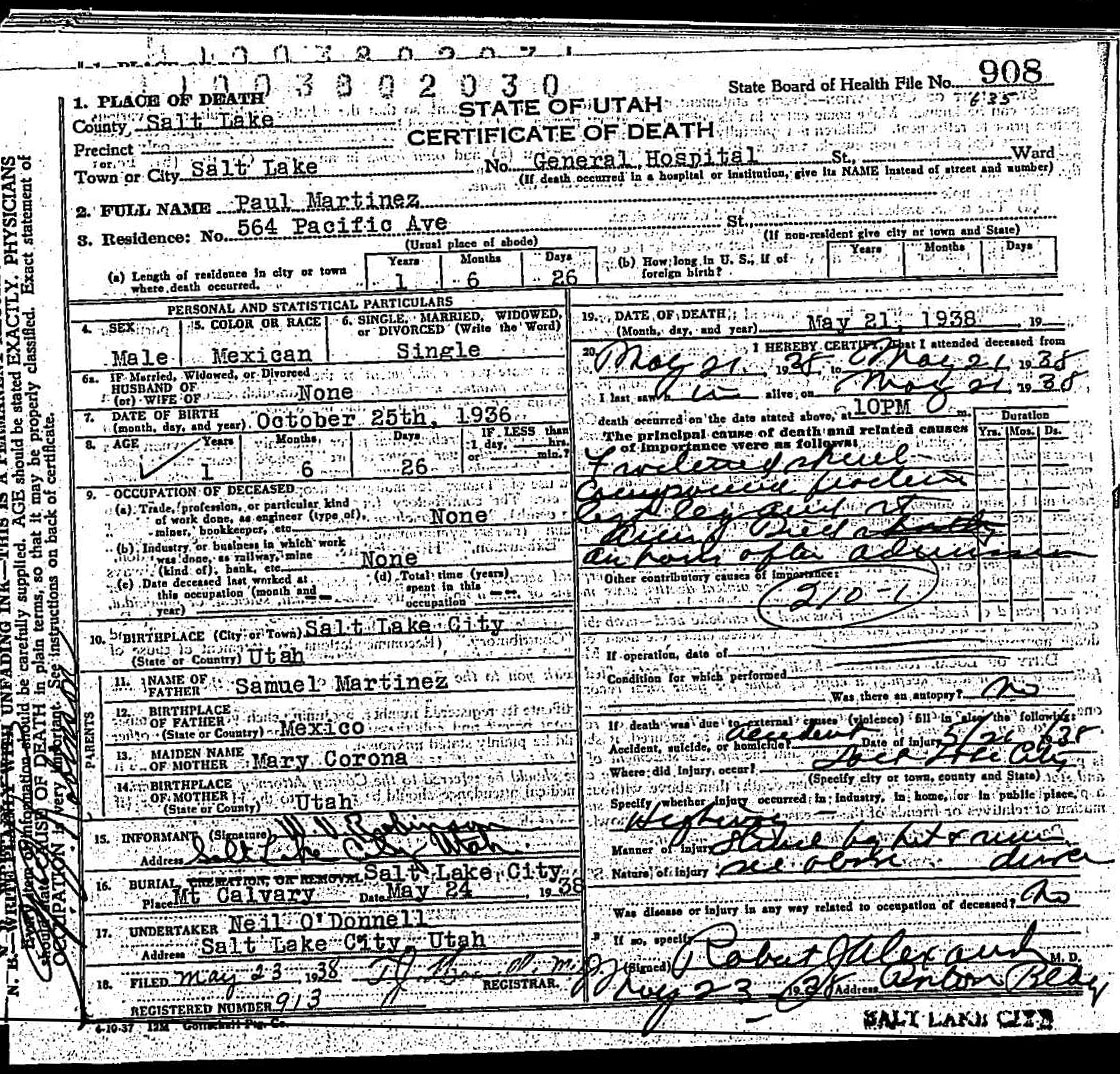 1 1 0 0 3 8 0 2 0 3 0
State Board of Health File No. 908
635
STATE OF UTAH
CERTIFICATE OF DEATH
1. PLACE OF DEATH
County Salt Lake
Precinct
or
Town or City Salt Lake No. General Hospital St., Ward
(If death occurred in a hospital or institution, give its NAME instead of street and number)
2. FULL NAME Paul Martinez
3. Residence: No. 564 Pacific Ave St.,
(Usual place of abode) (If non-resident give city or town and State)
(a) Length of residence in city or town where death occurred. Years 1 Months 6 Days 26
(b) How long in U. S., if of foreign birth? Years Months Days
PERSONAL AND STATISTICAL PARTICULARS
4. SEX Male
5. COLOR OR RACE Mexican
6. SINGLE, MARRIED, WIDOWED, or DIVORCED (Write the Word) Single
6a. IF Married, Widowed, or Divorced
HUSBAND OF
(or) WIFE OF None
7. DATE OF BIRTH
(month, day, and year) October 25th, 1936
8. AGE Years 1 Months 6 Days 26 IF LESS than 1 day, hrs. or min.?
9. OCCUPATION OF DECEASED
(a) Trade, profession, or particular kind
of work done, as engineer (type of),
miner, bookkeeper, etc. None
(b) Industry or business in which work
was done, as railway, mine
(kind of), bank, etc. None
(c) Date deceased last worked at
this occupation (month and
year) --
(d) Total time (years)
spent in this
occupation --
10. BIRTHPLACE (City or Town) Salt Lake City
(State or Country) Utah
PARENTS
11. NAME OF
FATHER Samuel Martinez
12. BIRTHPLACE
OF FATHER
(State or Country) Mexico
13. MAIDEN NAME
OF MOTHER Mary Corona
14. BIRTHPLACE
OF MOTHER
(State or County) Utah
15. INFORMANT (Signature) W. V. Robinson
Address Salt Lake City Utah
16. BURIAL, CREMATION, OR REMOVAL Salt Lake City
Place Mt Calvary Date May 24 1938
17. UNDERTAKER Neil O'Donnell
Address Salt Lake City, Utah
18. FILED May 23 1938
REGISTRAR.
REGISTERED NUMBER 913
4-10-37 12M
19. DATE OF DEATH
(Month, day, and year) May 21, 1938 19
20. I HEREBY CERTIFY, that I attended deceased from
May 21. 1938, to May 21 1938
I last saw him alive on May 21 1938
death occurred on the date stated above, at 10PM m.
The principal cause of death and related causes
of importance were as follows:
Duration
Yrs. Mos. Ds.
Fractured skull
Compound fracture
left leg and rt
Died
an hour after admission
Other contributory causes of importance:
210-1
If operation, date of
Condition for which performed
Was there an autopsy? No
If death was due to external causes (violence) fill in also the following:
Accident, suicide, or homicide? accident Date of injury 5/21 1938
Where did injury occur? Salt Lake City
(Specify city or town, county and State)
Specify whether injury occurred in industry, in home, or in public place,
Highway
Manner of injury Struck by hit & run
Nature of injury see above driver
Was disease or injury in any way related to occupation of deceased? No
If so, specify
(Signed) Robert J Alexander M. D.
May 23 1938 Address Bldg
SALT LAKE CITY
N. B.—WRITE PLAINLY WITH UNFADING INK—THIS IS A PERMANENT
Every item of information should be carefully supplied. AGE should be stated EXACTLY. PHYSICIANS
should state CAUSE OF DEATH in plain terms, so that it may be properly classified. Exact statement of
OCCUPATION is very important. See instructions on back of certificate.